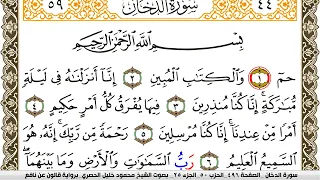 ٤٤ سُورَةُ الدُّخَانِ ٥٩
بِسْمِ اللَّهِ الرَّحْمَٰنِ الرَّحِيمِ
حمٓ ١ وَالْكِتَٰبِ الْمُبِينِ ٢ إِنَّآ أَنزَلْنَٰهُ فِي لَيْلَةٍ
مُّبَٰرَكَةٍ إِنَّا كُنَّا مُنذِرِينَ ٣ فِيهَا يُفْرَقُ كُلُّ أَمْرٍ حَكِيمٍ ٤
أَمْرًا مِّنْ عِندِنَآ إِنَّا كُنَّا مُرْسِلِينَ ٥ رَحْمَةً مِّن رَّبِّكَ إِنَّهُۥ هُوَ
السَّمِيعُ الْعَلِيمُ ٦ رَبُّ السَّمَٰوَٰتِ وَالْأَرْضِ وَمَا بَيْنَهُمَآ
سورة الدخان - الصفحة ٤٩٦ - الحزب ٥٠ - الجزء ٢٥ - بصوت الشيخ محمود خليل الحصري - برواية قالون عن نافع